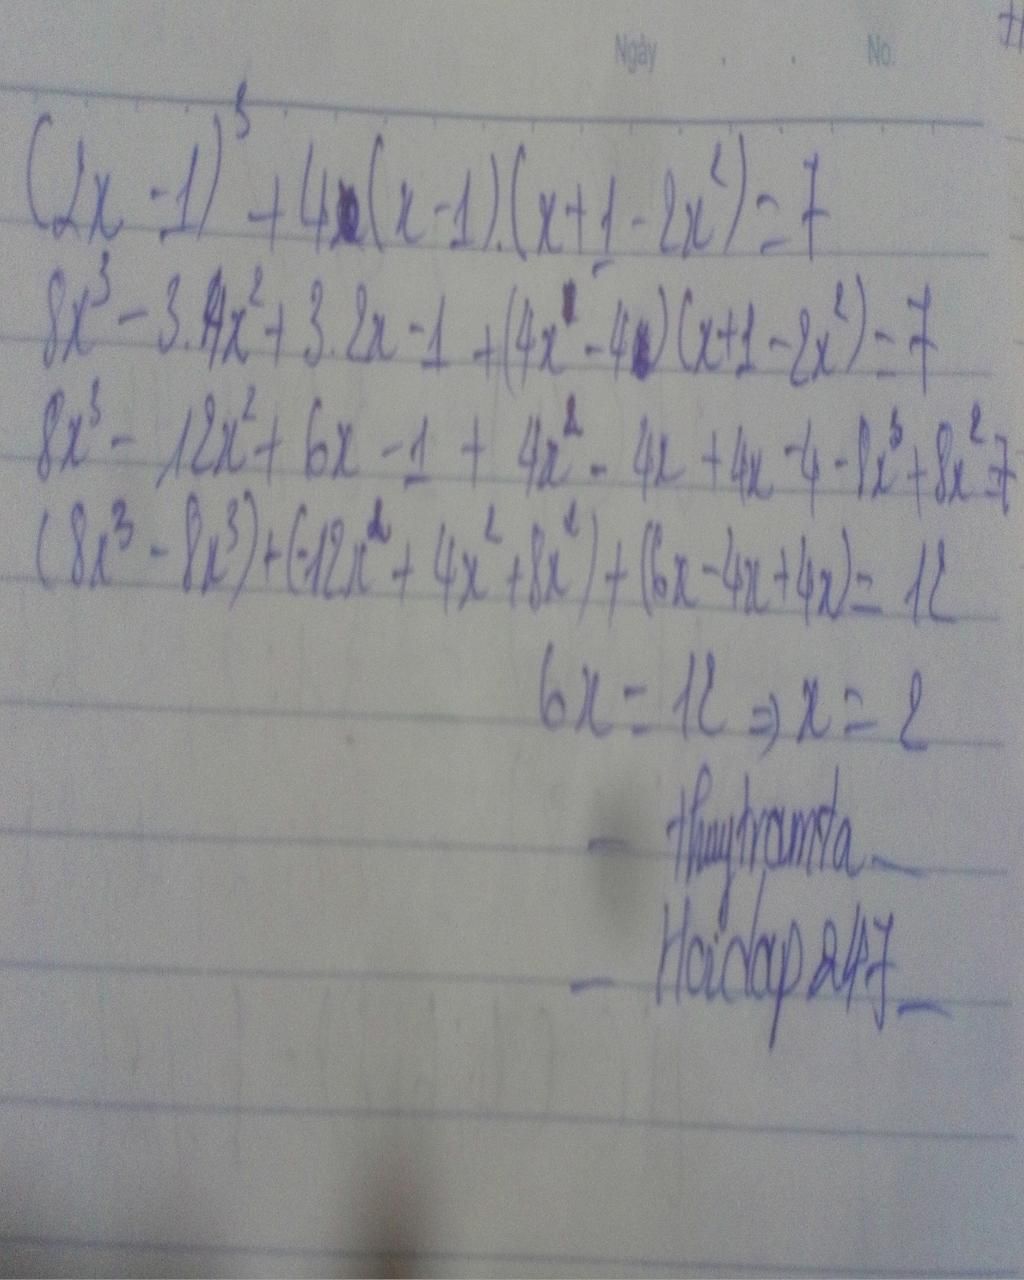 Ngày . . No.
(2x - 1)³ + 4(x - 1).(x + 1 - 2x²) = 7
8x³ - 3.4x² + 3.2x - 1 + (4x - 4)(x + 1 - 2x²) = 7
8x³ - 12x² + 6x - 1 + 4x² - 4x + 4x - 4 - 8x³ + 8x² = 7
(8x³ - 8x³) + (-12x² + 4x² + 8x²) + (6x - 4x + 4x) = 12
6x = 12 => x = 2
- thuytramta -
- Hoidap247 -